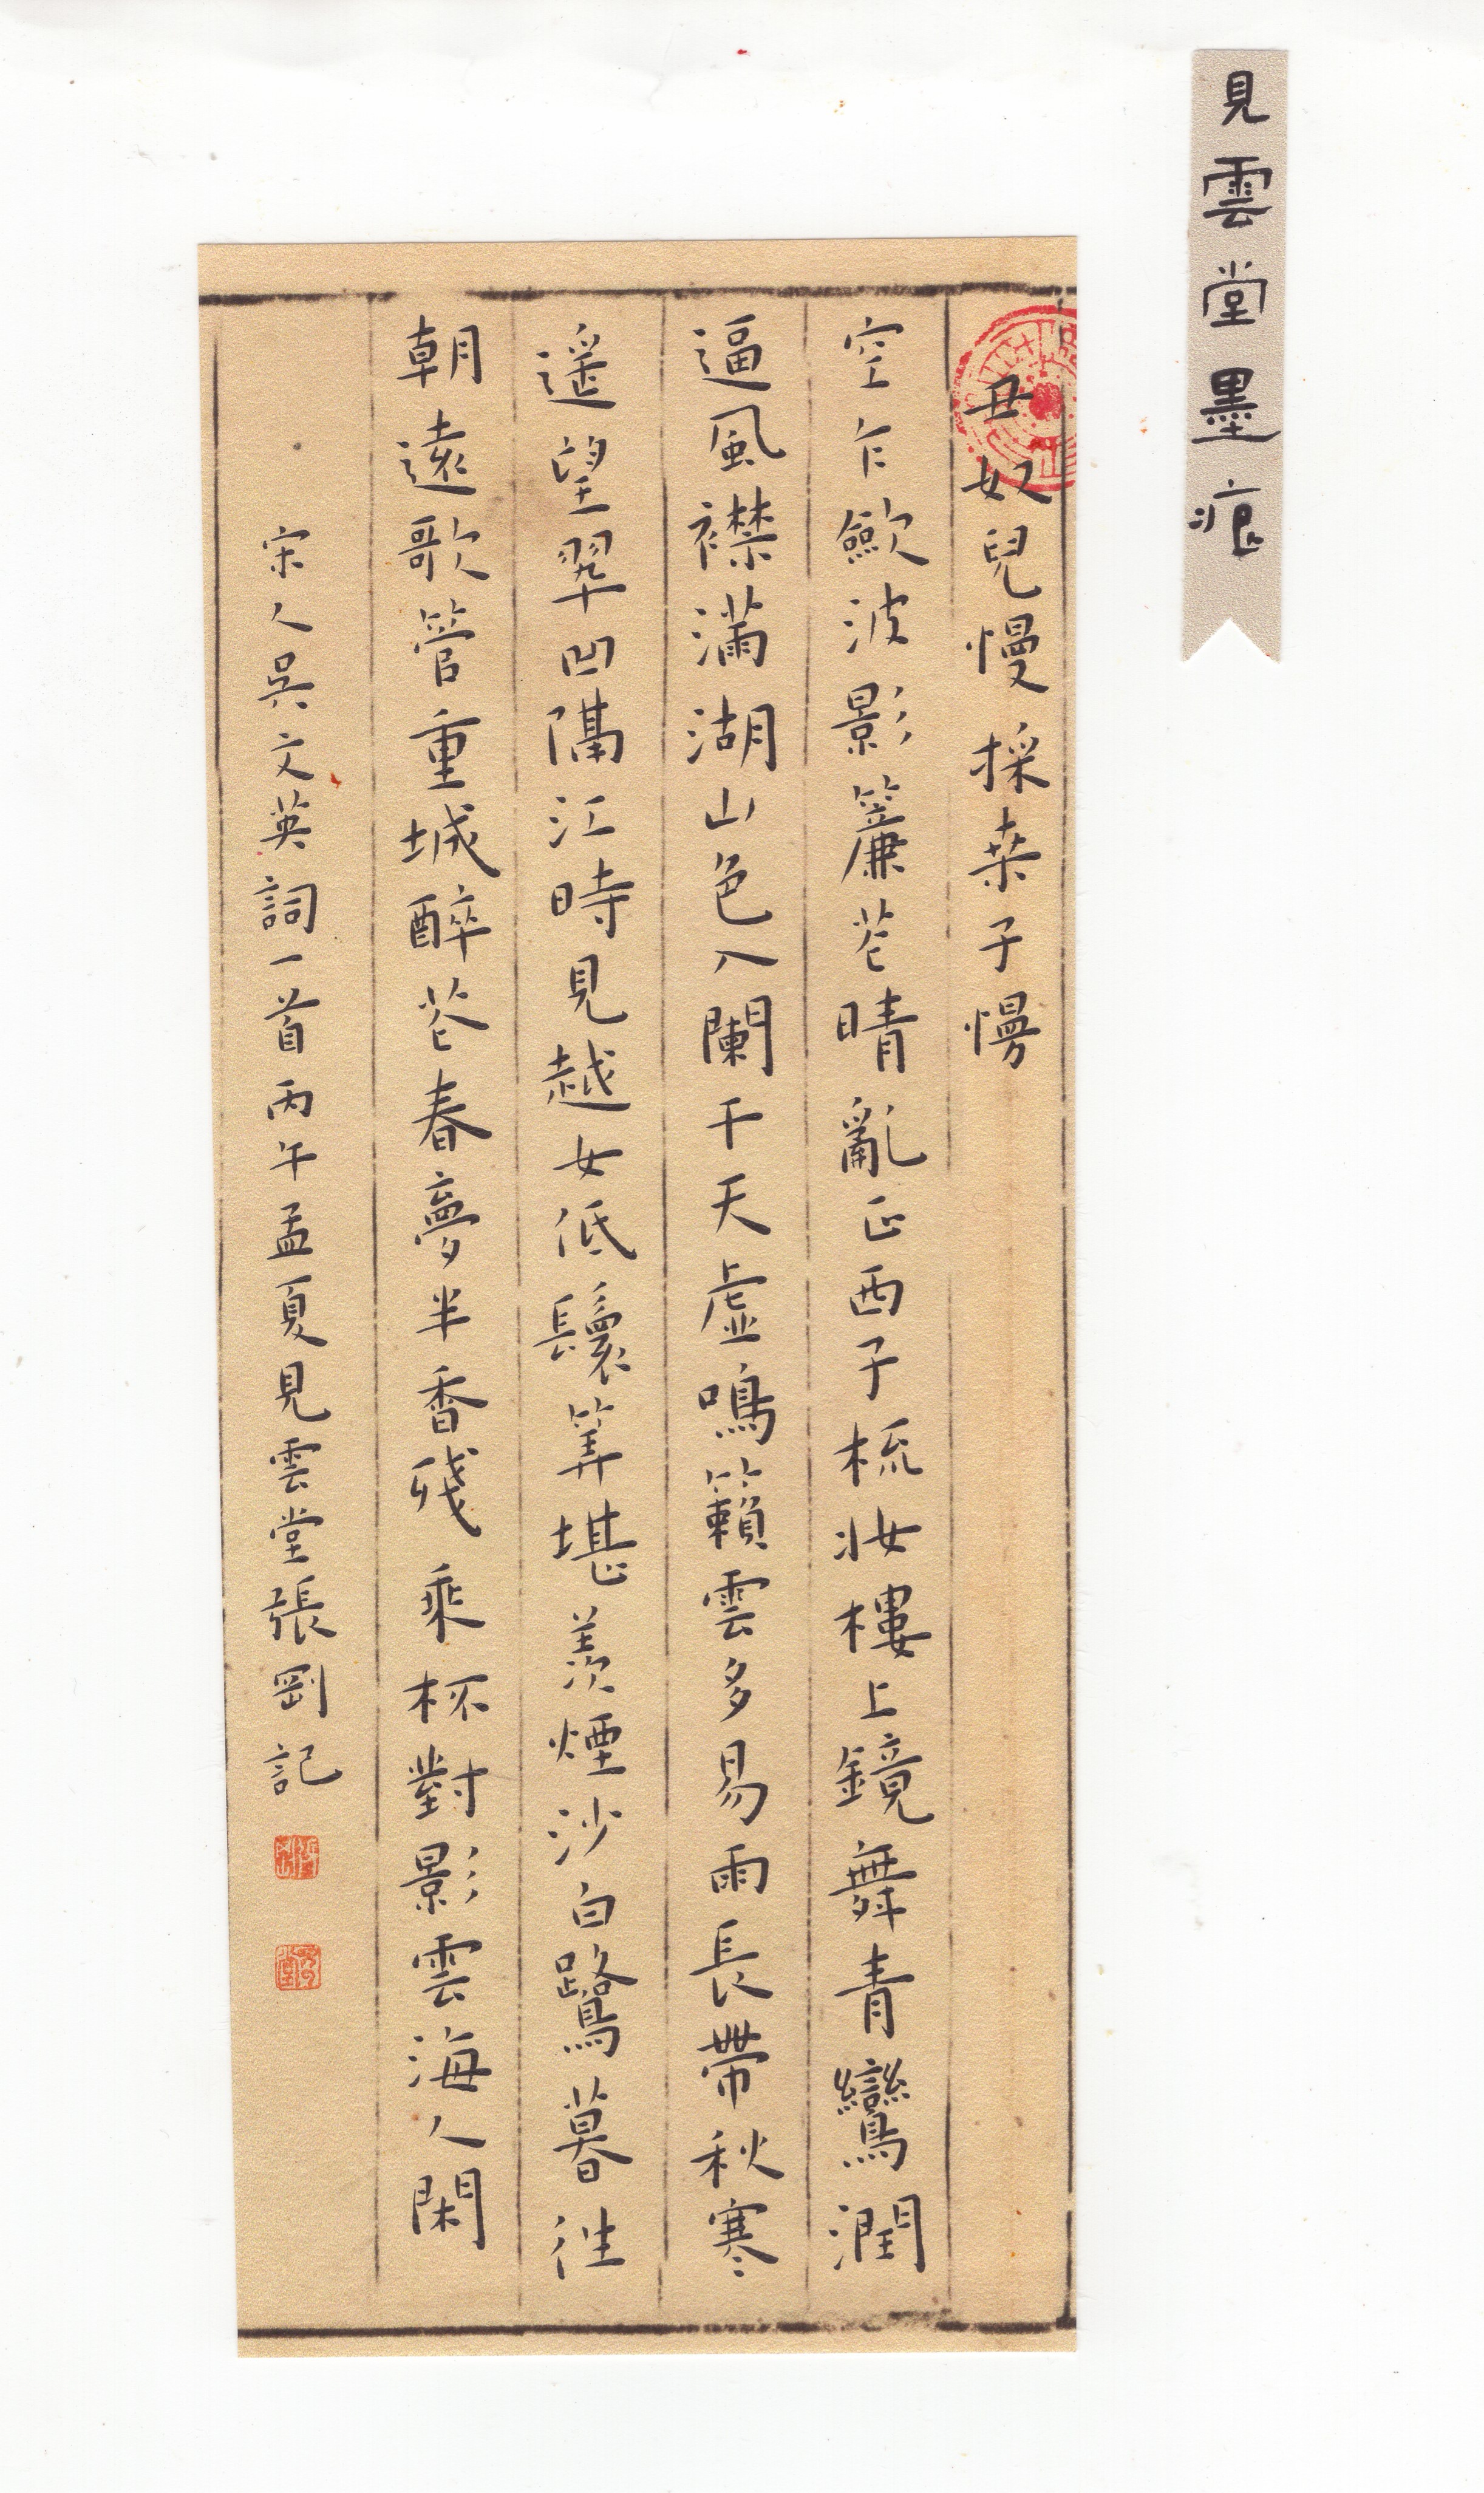 見雲堂墨痕
丑奴兒慢採桑子慢
空乍斂波影簾花晴亂正西子梳妝樓上鏡舞青鸞潤
逼風襟滿湖山色入闌干天虛鳴籟雲多易雨長帶秋寒
遥望翠凹隔江時見越女低鬟算堪羨煙沙白鷺暮往
朝遠歌管重城醉花春夢半香殘乘杯對影雲海人閑
宋人吳文英詞一首丙午孟夏見雲堂張剛記